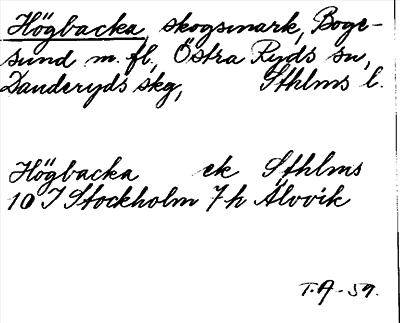 Högbacka, skogsmark, Boge-
sund m. fl, Östra Ryds sn,
Danderyds skg, Sthlms l.
Högbacka ek Sthlms
10 I Stockholm 7 h Älvvik
T.A-59.